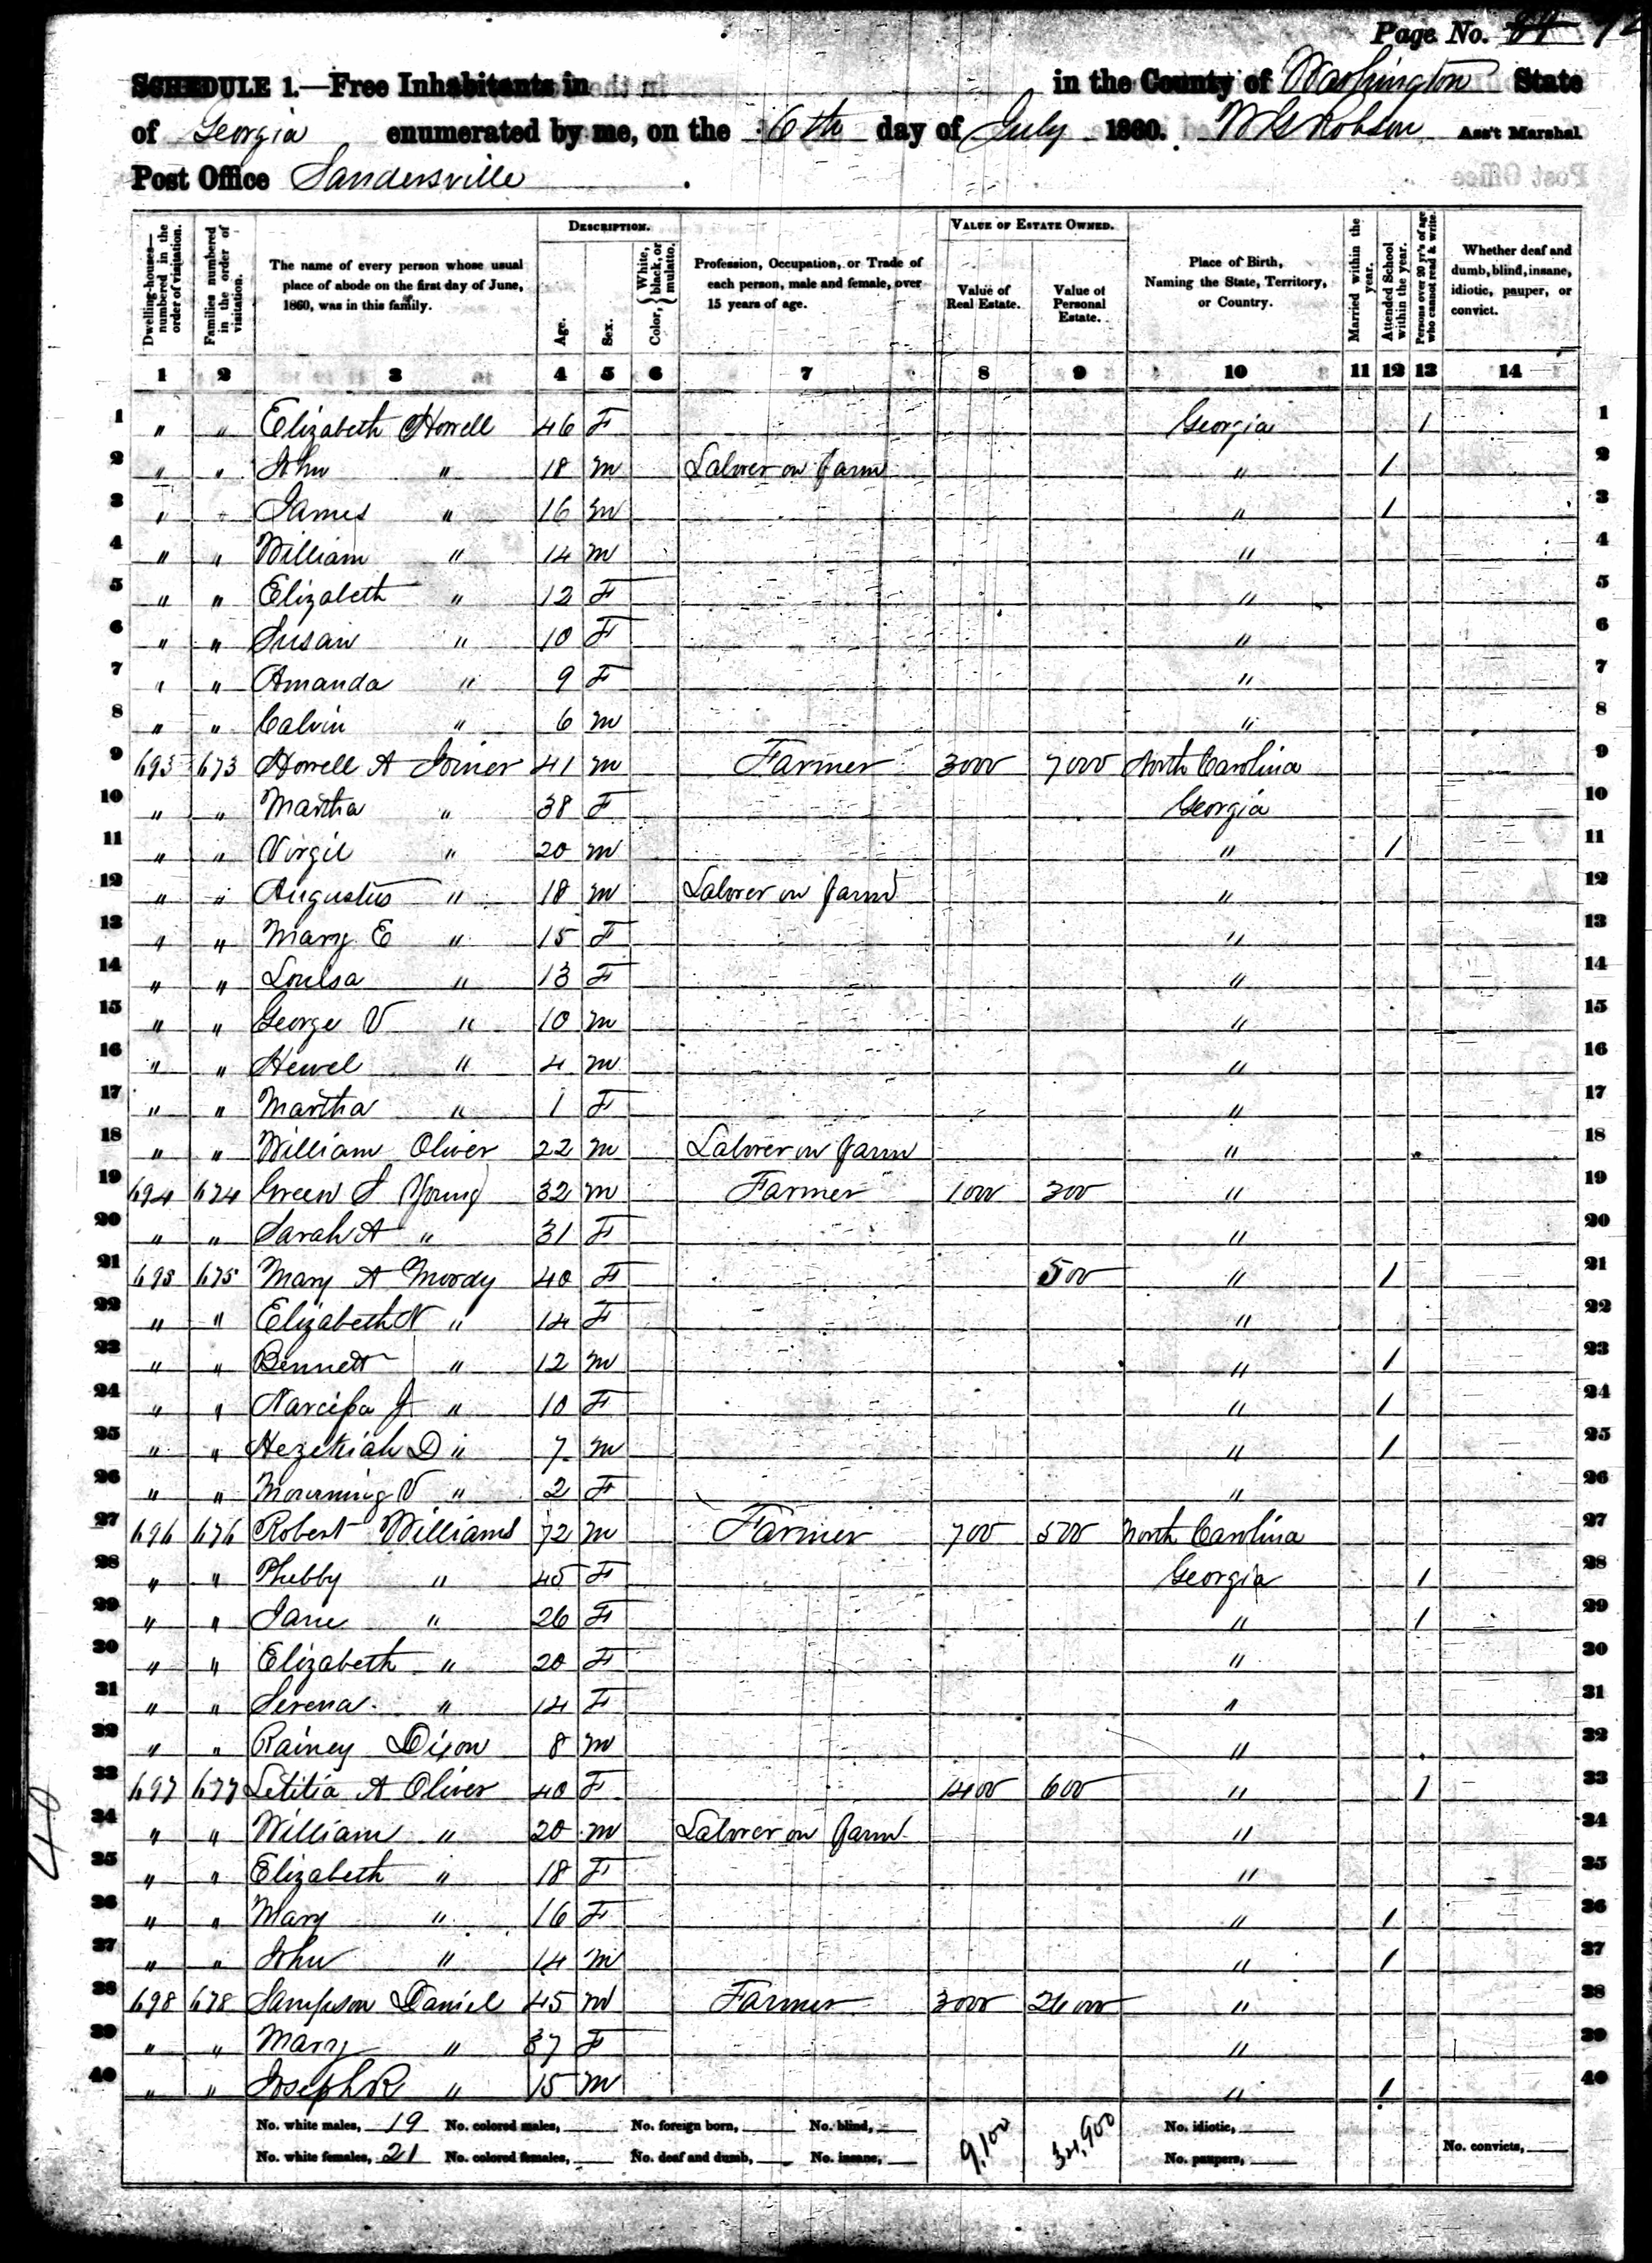 Page No. 84 72
SCHEDULE 1.—Free Inhabitants in in the County of Washington State
of Georgia enumerated by me, on the 6th day of July 1860. W G Robson Ass't Marshal
Post Office Sandersville
Dwelling-houses—numbered in the order of visitation. Families numbered in the order of visitation. The name of every person whose usual place of abode on the first day of June, 1860, was in this family. DESCRIPTION. Age. Sex. Color, { White, black, or mulatto. Profession, Occupation, or Trade of each person, male and female, over 15 years of age. VALUE OF ESTATE OWNED. Value of Real Estate. Value of Personal Estate. Place of Birth, Naming the State, Territory, or Country. Married within the year. Attended School within the year. Persons over 20 yr's of age who cannot read & write. Whether deaf and dumb, blind, insane, idiotic, pauper, or convict.
1 2 3 4 5 6 7 8 9 10 11 12 13 14
1 " " Elizabeth Howell 46 F Georgia 1 1
2 " " John " 18 m Laborer on farm " 1 2
3 " " James " 16 m " 1 3
4 " " William " 14 m " 4
5 " " Elizabeth " 12 F " 5
6 " " Susan " 10 F " 6
7 " " Amanda " 9 F " 7
8 " " Calvin " 6 m " 8
9 693 673 Howell A Joiner 41 m Farmer 3000 7000 North Carolina 9
10 " " Martha " 38 F Georgia 10
11 " " Virgil " 20 m " 1 11
12 " " Augustus " 18 m Laborer on farm " 12
13 " " Mary E " 15 F " 13
14 " " Louisa " 13 F " 14
15 " " George V " 10 m " 15
16 " " Hewel " 4 m " 16
17 " " Martha " 1 F " 17
18 " " William Oliver 22 m Laborer on farm " 18
19 694 674 Green S Young 32 m Farmer 1000 300 " 19
20 " " Sarah A " 31 F " 20
21 695 675 Mary A Moody 40 F 500 " 1 21
22 " " Elizabeth N " 14 F " 22
23 " " Bennett " 12 m " 1 23
24 " " Narcissa J " 10 F " 1 24
25 " " Hezekiah D " 7 m " 1 25
26 " " Mourning V " 2 F " 26
27 696 676 Robert Williams 72 m Farmer 700 500 North Carolina 27
28 " " Phebby " 45 F Georgia 1 28
29 " " Jane " 26 F " 1 29
30 " " Elizabeth " 20 F " 30
31 " " Serena " 14 F " 31
32 " " Rainey Dixon 8 m " 32
33 697 677 Letitia A Oliver 40 F 1400 600 " 1 33
34 " " William " 20 m Laborer on farm " 34
35 " " Elizabeth " 18 F " 35
36 " " Mary " 16 F " 1 36
37 " " John " 14 m " 1 37
38 698 678 Sampson Daniel 45 m Farmer 3000 26000 " 38
39 " " Mary " 37 F " 39
40 " " Joseph R " 15 m " 1 40
No. white males, 19 No. colored males, No. foreign born, No. blind, 9,100 34,900 No. idiotic,
No. white females, 21 No. colored females, No. deaf and dumb, No. insane, No. paupers, No. convicts,
40